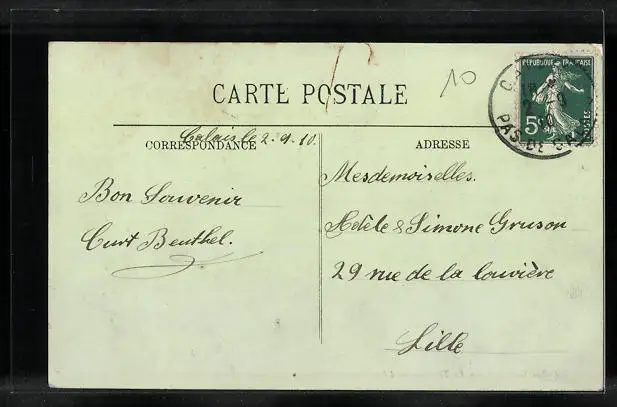 10
REPUBLIQUE FRANÇAISE
5c
POSTES
2 -9
10
PAS DE C
CARTE POSTALE
Calais le 2-9-10.
CORRESPONDANCE
ADRESSE
Bon Souvenir
Curt Beuthel.
Mesdemoiselles.
Adèle & Simone Gruson
29 rue de la louvière
Lille